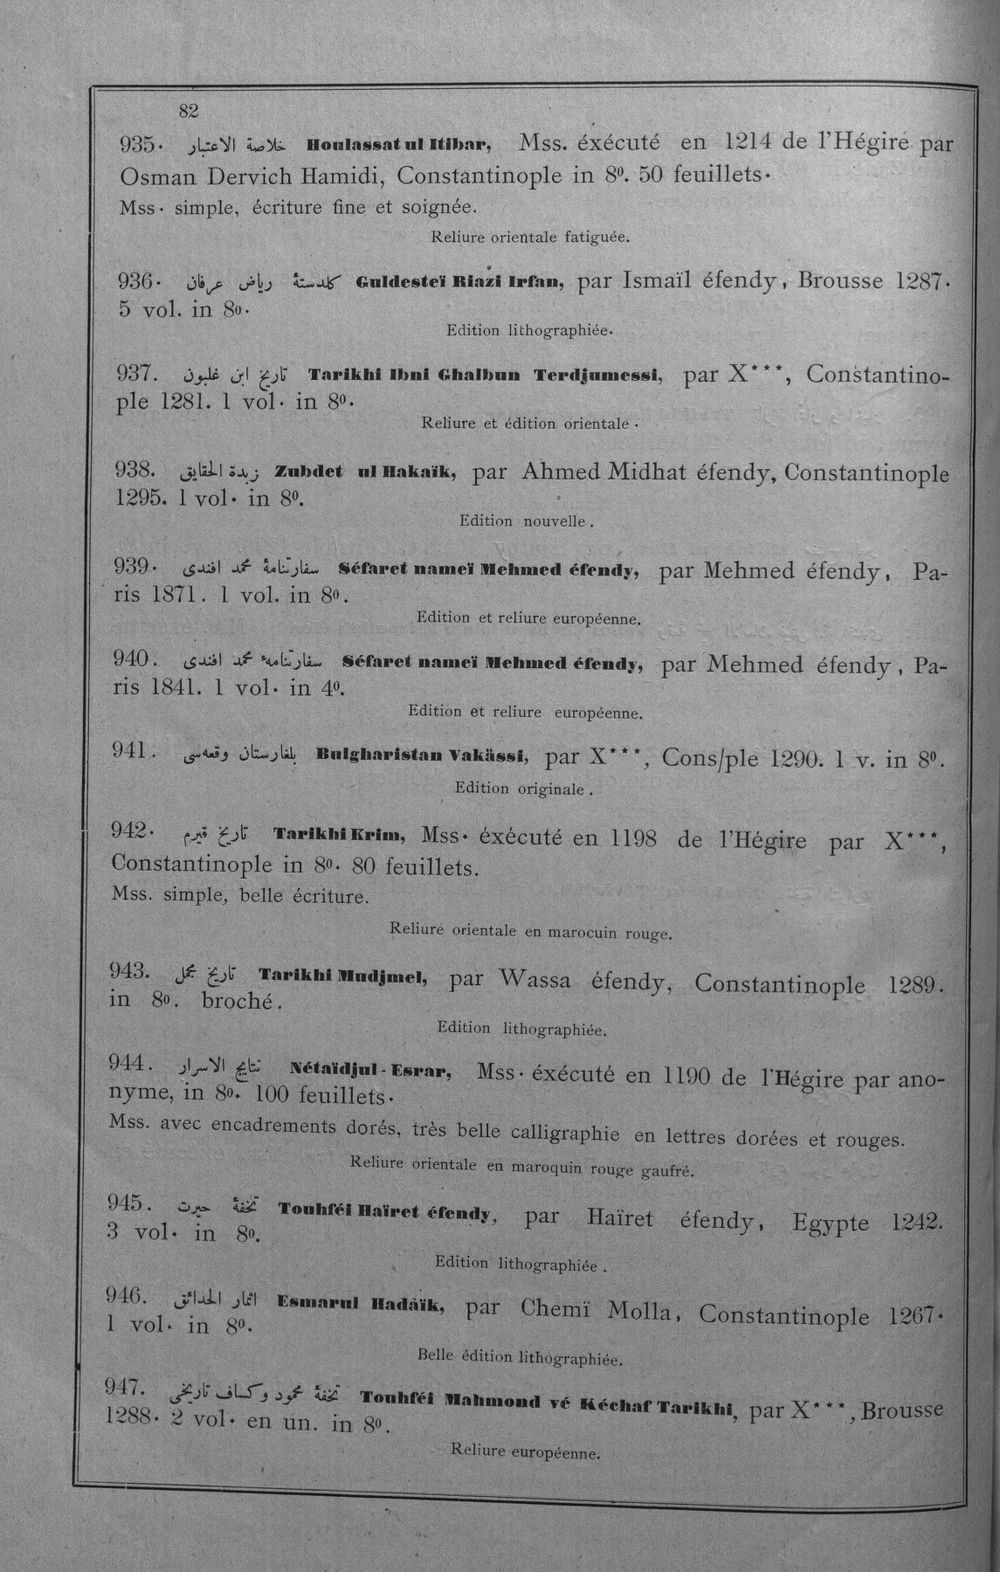 82
935. خلاصة الاعتبار Houlassat ul Itibar, Mss. éxécuté en 1214 de l'Hégire par
Osman Dervich Hamidi, Constantinople in 8º. 50 feuillets.
Mss. simple, écriture fine et soignée.
Reliure orientale fatiguée.
936. كلدستهٔ رياض عرفان Guldesteï Riazi Irfan, par Ismaïl éfendy, Brousse 1287.
5 vol. in 8º.
Edition lithographiée.
937. تاريخ ابن غلبون Tarikhi Ibni Ghalbun Terdjumessi, par X***, Constantino-
ple 1281. 1 vol. in 8º.
Reliure et édition orientale.
938. زبدة الحقايق Zubdet ul Hakaïk, par Ahmed Midhat éfendy, Constantinople
1295. 1 vol. in 8º.
Edition nouvelle.
939. سفارتنامهٔ محمد افندى Séfaret nameï Mehmed éfendy, par Mehmed éfendy, Pa-
ris 1871. 1 vol. in 8º.
Edition et reliure européenne.
940. سفارتنامهٔ محمد افندى Séfaret nameï Mehmed éfendy, par Mehmed éfendy, Pa-
ris 1841. 1 vol. in 4º.
Edition et reliure européenne.
941. بلغارستان وقعه‌سى Bulgharistan Vakässi, par X***, Cons/ple 1290. 1 v. in 8º.
Edition originale.
942. تاريخ قيرم Tarikhi Krim, Mss. éxécuté en 1198 de l'Hégire par X***,
Constantinople in 8º. 80 feuillets.
Mss. simple, belle écriture.
Reliure orientale en marocuin rouge.
943. تاريخ مجمل Tarikhi Mudjmel, par Wassa éfendy, Constantinople 1289.
in 8º. broché.
Edition lithographiée.
944. نتايج الاسرار Nétaïdjul-Esrar, Mss. éxécuté en 1190 de l'Hégire par ano-
nyme, in 8º. 100 feuillets.
Mss. avec encadrements dorés, très belle calligraphie en lettres dorées et rouges.
Reliure orientale en maroquin rouge gaufré.
945. تحفهٔ حيرت Touhféi Haïret éfendy, par Haïret éfendy, Egypte 1242.
3 vol. in 8º.
Edition lithographiée.
946. اثمار الحدائق Esmarul Hadaïk, par Chemï Molla, Constantinople 1267.
1 vol. in 8º.
Belle édition lithographiée.
947. تحفهٔ محمود وكساف تاريخى Touhféi Mahmoud vé Kéchaf Tarikhi, par X***, Brousse
1288. 2 vol. en un. in 8º.
Reliure européenne.